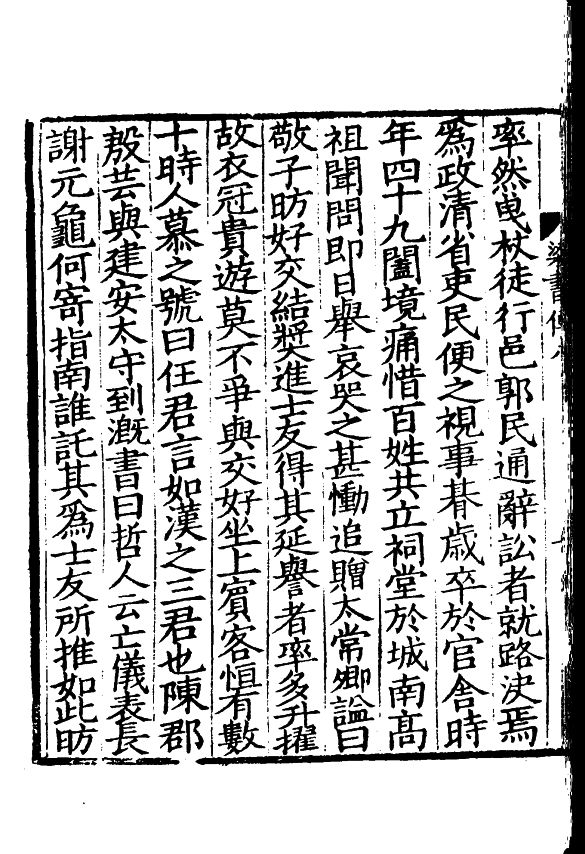 率然曳杖徒行邑郭民通辭訟者就路決焉
爲政清省吏民便之視事朞歲卒於官舍時
年四十九闔境痛惜百姓共立祠堂於城南高
祖聞問即日舉哀哭之甚慟追贈太常卿諡曰
敬子昉好交結奬進士友得其延譽者率多升擢
故衣冠貴遊莫不爭與交好坐上賓客恒有數
十時人慕之號曰任君言如漢之三君也陳郡
殷芸與建安太守到漑書曰哲人云亡儀表長
謝元龜何寄指南誰託其爲士友所推如此昉